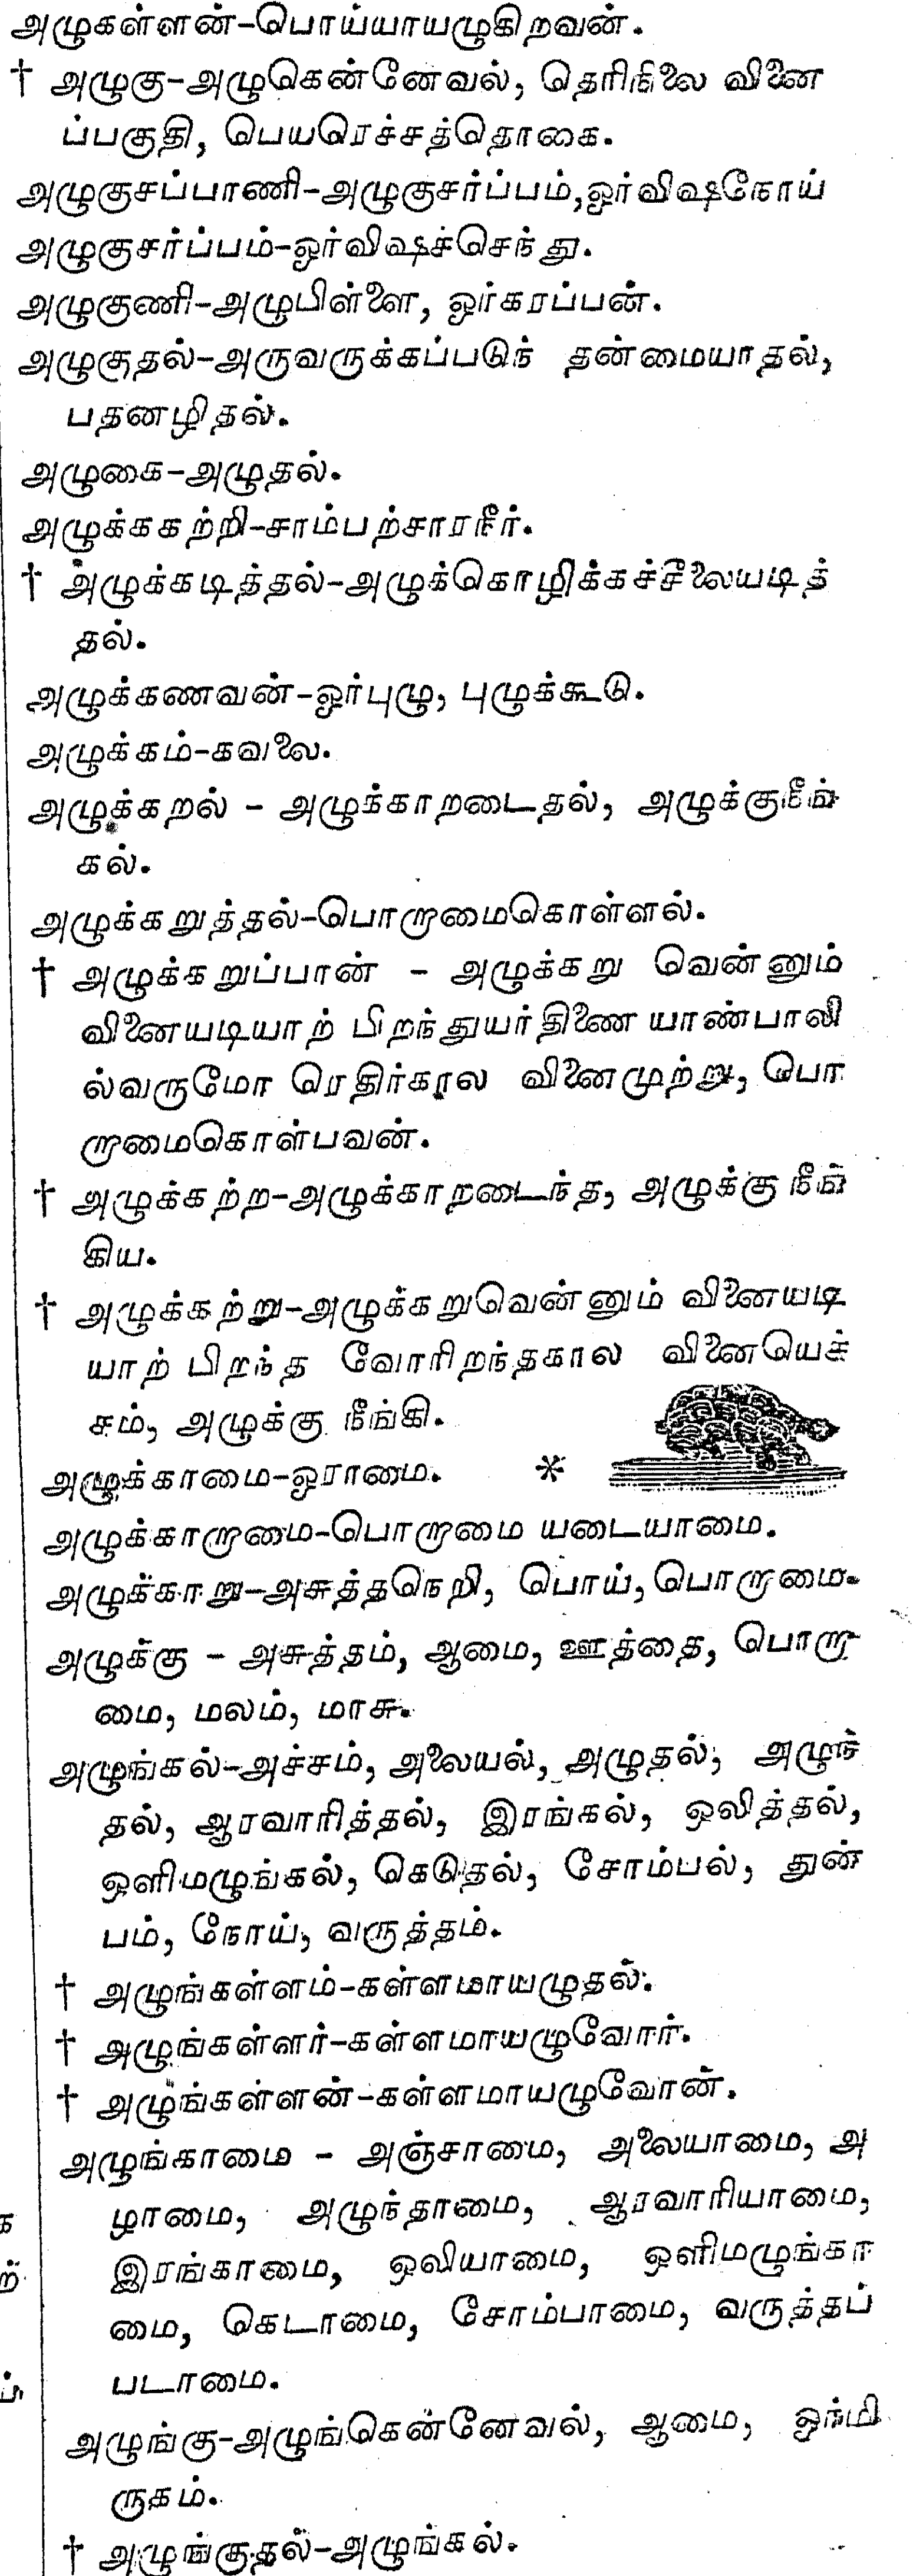 அழுகள்ளன்-பொய்யாயழுகிறவன்.
† அழுகு-அழுகென்னேவல், தெரிநிலை வினை
ப்பகுதி, பெயரெச்சத்தொகை.
அழுகுசப்பாணி-அழுகுசர்ப்பம்,ஓர்விஷநோய்
அழுகுசர்ப்பம்-ஓர்விஷச்செந்து.
அழுகுணி-அழுபிள்ளை, ஓர்கரப்பன்.
அழுகுதல்-அருவருக்கப்படுந் தன்மையாதல்,
பதனழிதல்.
அழுகை-அழுதல்.
அழுக்ககற்றி-சாம்பற்சாரநீர்.
† அழுக்கடித்தல்-அழுக்கொழிக்கச்சீலையடித்
தல்.
அழுக்கணவன்-ஓர்புழு, புழுக்கூடு.
அழுக்கம்-கவலை.
அழுக்கறல் - அழுக்காறடைதல், அழுக்குநீங்
கல்.
அழுக்கறுத்தல்-பொறாமைகொள்ளல்.
† அழுக்கறுப்பான் - அழுக்கறு வென்னும்
வினையடியாற் பிறந்துயர்திணை யாண்பாலி
ல்வருமோ ரெதிர்கால வினைமுற்று, பொ
றாமைகொள்பவன்.
† அழுக்கற்ற-அழுக்காறடைந்த, அழுக்கு நீங்
கிய.
† அழுக்கற்று-அழுக்கறுவென்னும் வினையடி
யாற் பிறந்த வோரிறந்தகால வினையெச்
சம், அழுக்கு நீங்கி.
அழுக்காமை-ஓராமை. *
அழுக்காறாமை-பொறாமை யடையாமை.
அழுக்காறு-அசுத்தநெறி, பொய், பொறாமை.
அழுக்கு - அசுத்தம், ஆமை, ஊத்தை, பொறா
மை, மலம், மாசு.
அழுங்கல்-அச்சம், அலையல், அழுதல், அழுந்
தல், ஆரவாரித்தல், இரங்கல், ஒலித்தல்,
ஒளிமழுங்கல், கெடுதல், சோம்பல், துன்
பம், நோய், வருத்தம்.
† அழுங்கள்ளம்-கள்ளமாயழுதல்.
† அழுங்கள்ளர்-கள்ளமாயழுவோர்.
† அழுங்கள்ளன்-கள்ளமாயழுவோன்.
அழுங்காமை - அஞ்சாமை, அலையாமை, அ
ழாமை, அழுந்தாமை, ஆரவாரியாமை,
இரங்காமை, ஒலியாமை, ஒளிமழுங்கா
மை, கெடாமை, சோம்பாமை, வருத்தப்
படாமை.
அழுங்கு-அழுங்கென்னேவல், ஆமை, ஓர்மி
ருகம்.
† அழுங்குதல்-அழுங்கல்.